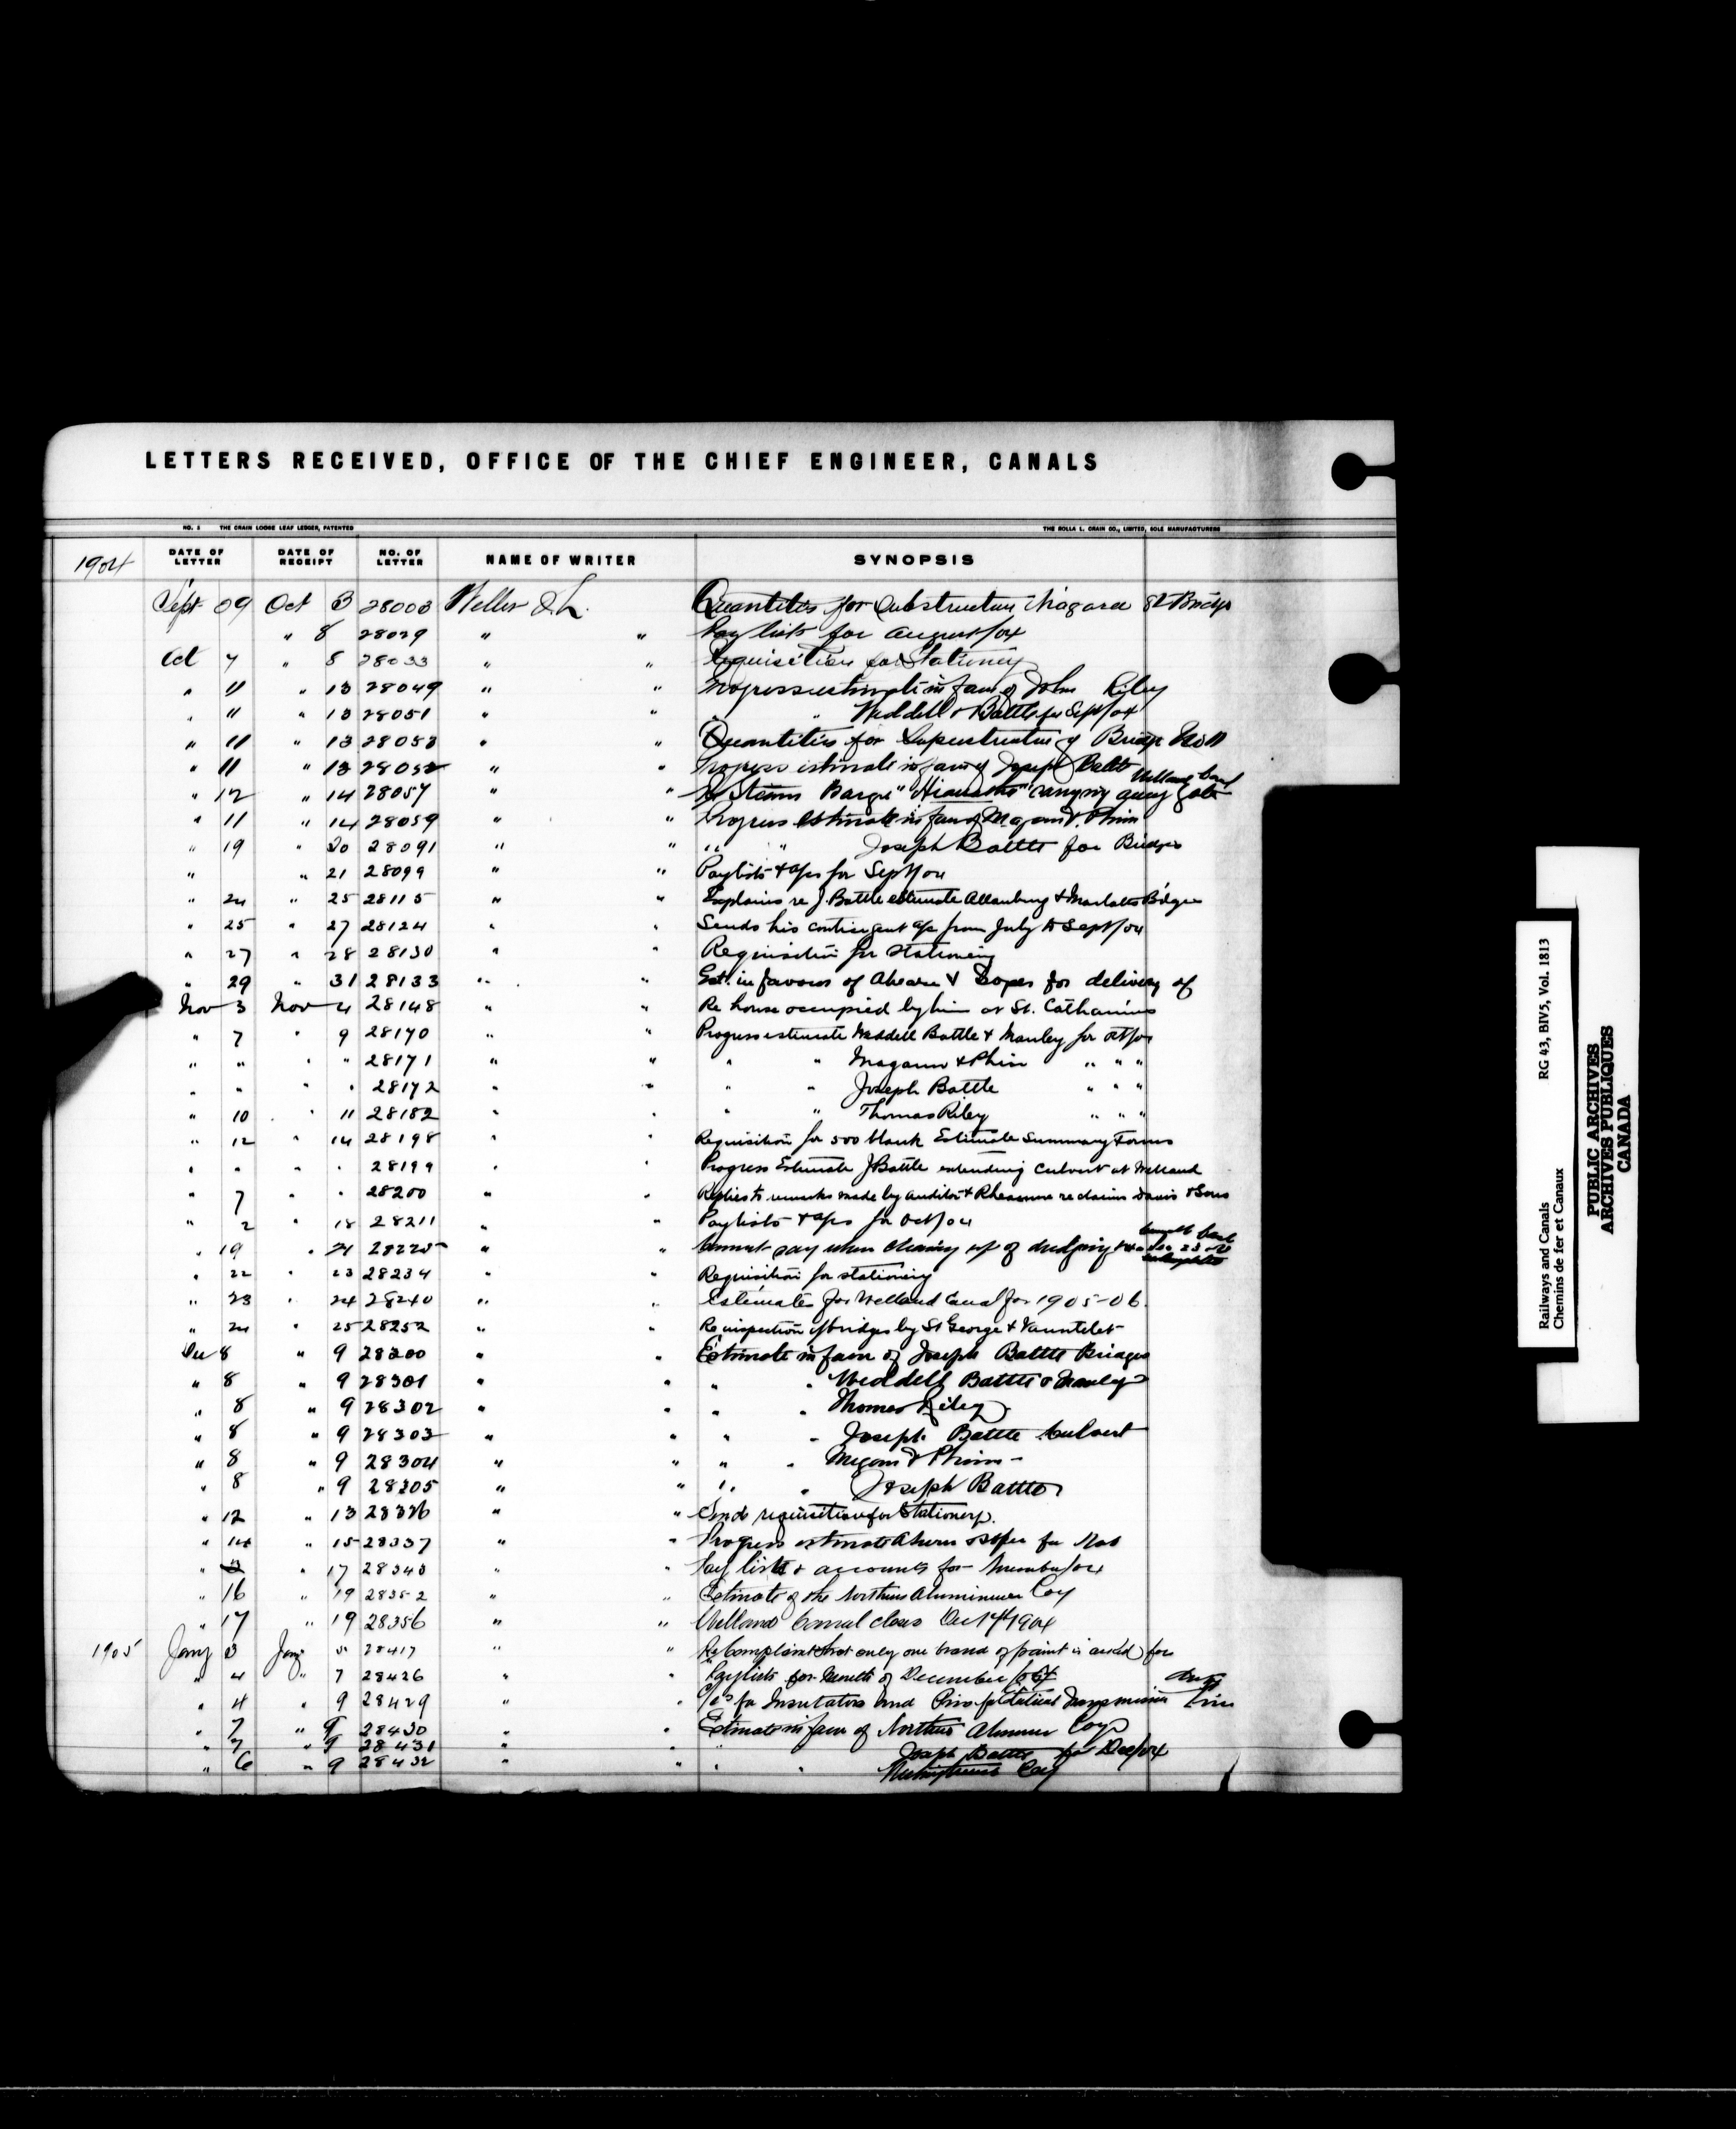 LETTERS RECEIVED, OFFICE OF THE CHIEF ENGINEER, CANALS
NO. 1 THE CRAIN LOOSE LEAF LEDGER, PATENTED THE ROLLA L. CRAIN CO., LIMITED, SOLE MANUFACTURERS
1904 DATE OF LETTER DATE OF RECEIPT NO. OF LETTER NAME OF WRITER SYNOPSIS
Sept 29 Oct 3 28003 Weller J.L. Quantities for Substructure Niagara St Bridge
" 8 28029 " " Pay lists for August/04
Oct 7 " 8 28033 " " Requisition for Stationery
" 11 " 13 28049 " " Progress estimate in favor of John Riley
" 11 " 13 28051 " " " Weddell & Battle for Sept/04
" 11 " 13 28053 " " Quantities for Superstructure of Bridge No 11
" 11 " 13 28052 " " Progress estimate in favor of Joseph Battle Welland Canal
" 12 " 14 28057 " " Re Steam Barge "Hiawatha" carrying away Gate
" 11 " 14 28059 " " Progress estimate in favor of Magann & Phin
" 19 " 20 28091 " " " " Joseph Battle for Bridges
" " 21 28099 " " Paylists & a/cs for Sept/04
" 24 " 25 28115 " " Explains re J. Battle estimate Allanburg & Marlatts Bdges
" 25 " 27 28124 " " Sends his contingent a/c from July to Sept/04
" 27 " 28 28130 " " Requisition for stationery
" 29 " 31 28133 " " Est. in favour of Ahearn & Soper for delivery of
Nov 3 Nov 4 28148 " " Re house occupied by him at St. Catharines
" 7 " 9 28170 " " Progress estimate Weddell Battle & Manley for Oct/04
" " " " 28171 " " " " Magann & Phin " " "
" " " " 28172 " " " " Joseph Battle " " "
" 10 " 11 28182 " " " " Thomas Riley " " "
" 12 " 14 28198 " " Requisition for 500 blank Estimate Summary Forms
" " " " 28199 " " Progress Estimate J Battle extending culvert at Welland
" 7 " " 28200 " " Replies to remarks made by auditor & Rheaume re claim Davis & Sons
" 2 " 18 28211 " " Paylists & a/cs for Oct/04
" 19 " 21 28225 " " Cannot say when cleaning up of dredging
" 22 " 23 28234 " " Requisition for stationery
" 23 " 24 28240 " " Estimates for Welland Canal for 1905-06.
" 24 " 25 28252 " " Re inspection of bridges by St George & Vautelet
Dec 8 " 9 28300 " " Estimate in favor of Joseph Battle Bridges
" 8 " 9 28301 " " " " Weddell Battle & Manley
" 8 " 9 28302 " " " " Thomas Riley
" 8 " 9 28303 " " " " Joseph Battle Culvert
" 8 " 9 28304 " " " " Magann & Phin
" 8 " 9 28305 " " " " Joseph Battle
" 12 " 13 28326 " " Sends requisition for Stationery.
" 14 " 15 28337 " " Progress estimate Ahern & Soper for Nov
" " 17 28343 " " Pay lists & accounts for November/04
" 16 " 19 28352 " " Estimate of the Northern Aluminum Coy
" 17 " 19 28356 " " Welland Canal closes Dec 17th 1904
1905 Jany 3 Jany 5 28417 " " Re Complaint that only one brand of paint is asked for
" 4 " 7 28426 " " Paylists for Month of December/04
" 4 " 9 28429 " " a/cs for Insulators and Pins for Electrical Transmission Line
" 7 " 9 28430 " " Estimate in favor of Northern Aluminum Coy
" 7 " 9 28431 " " Joseph Battle for Dec/04
" 6 " 9 28432 " " " " Coy
Railways and Canals RG 43, BIV5, Vol. 1813
Chemins de fer et Canaux
PUBLIC ARCHIVES
ARCHIVES PUBLIQUES
CANADA